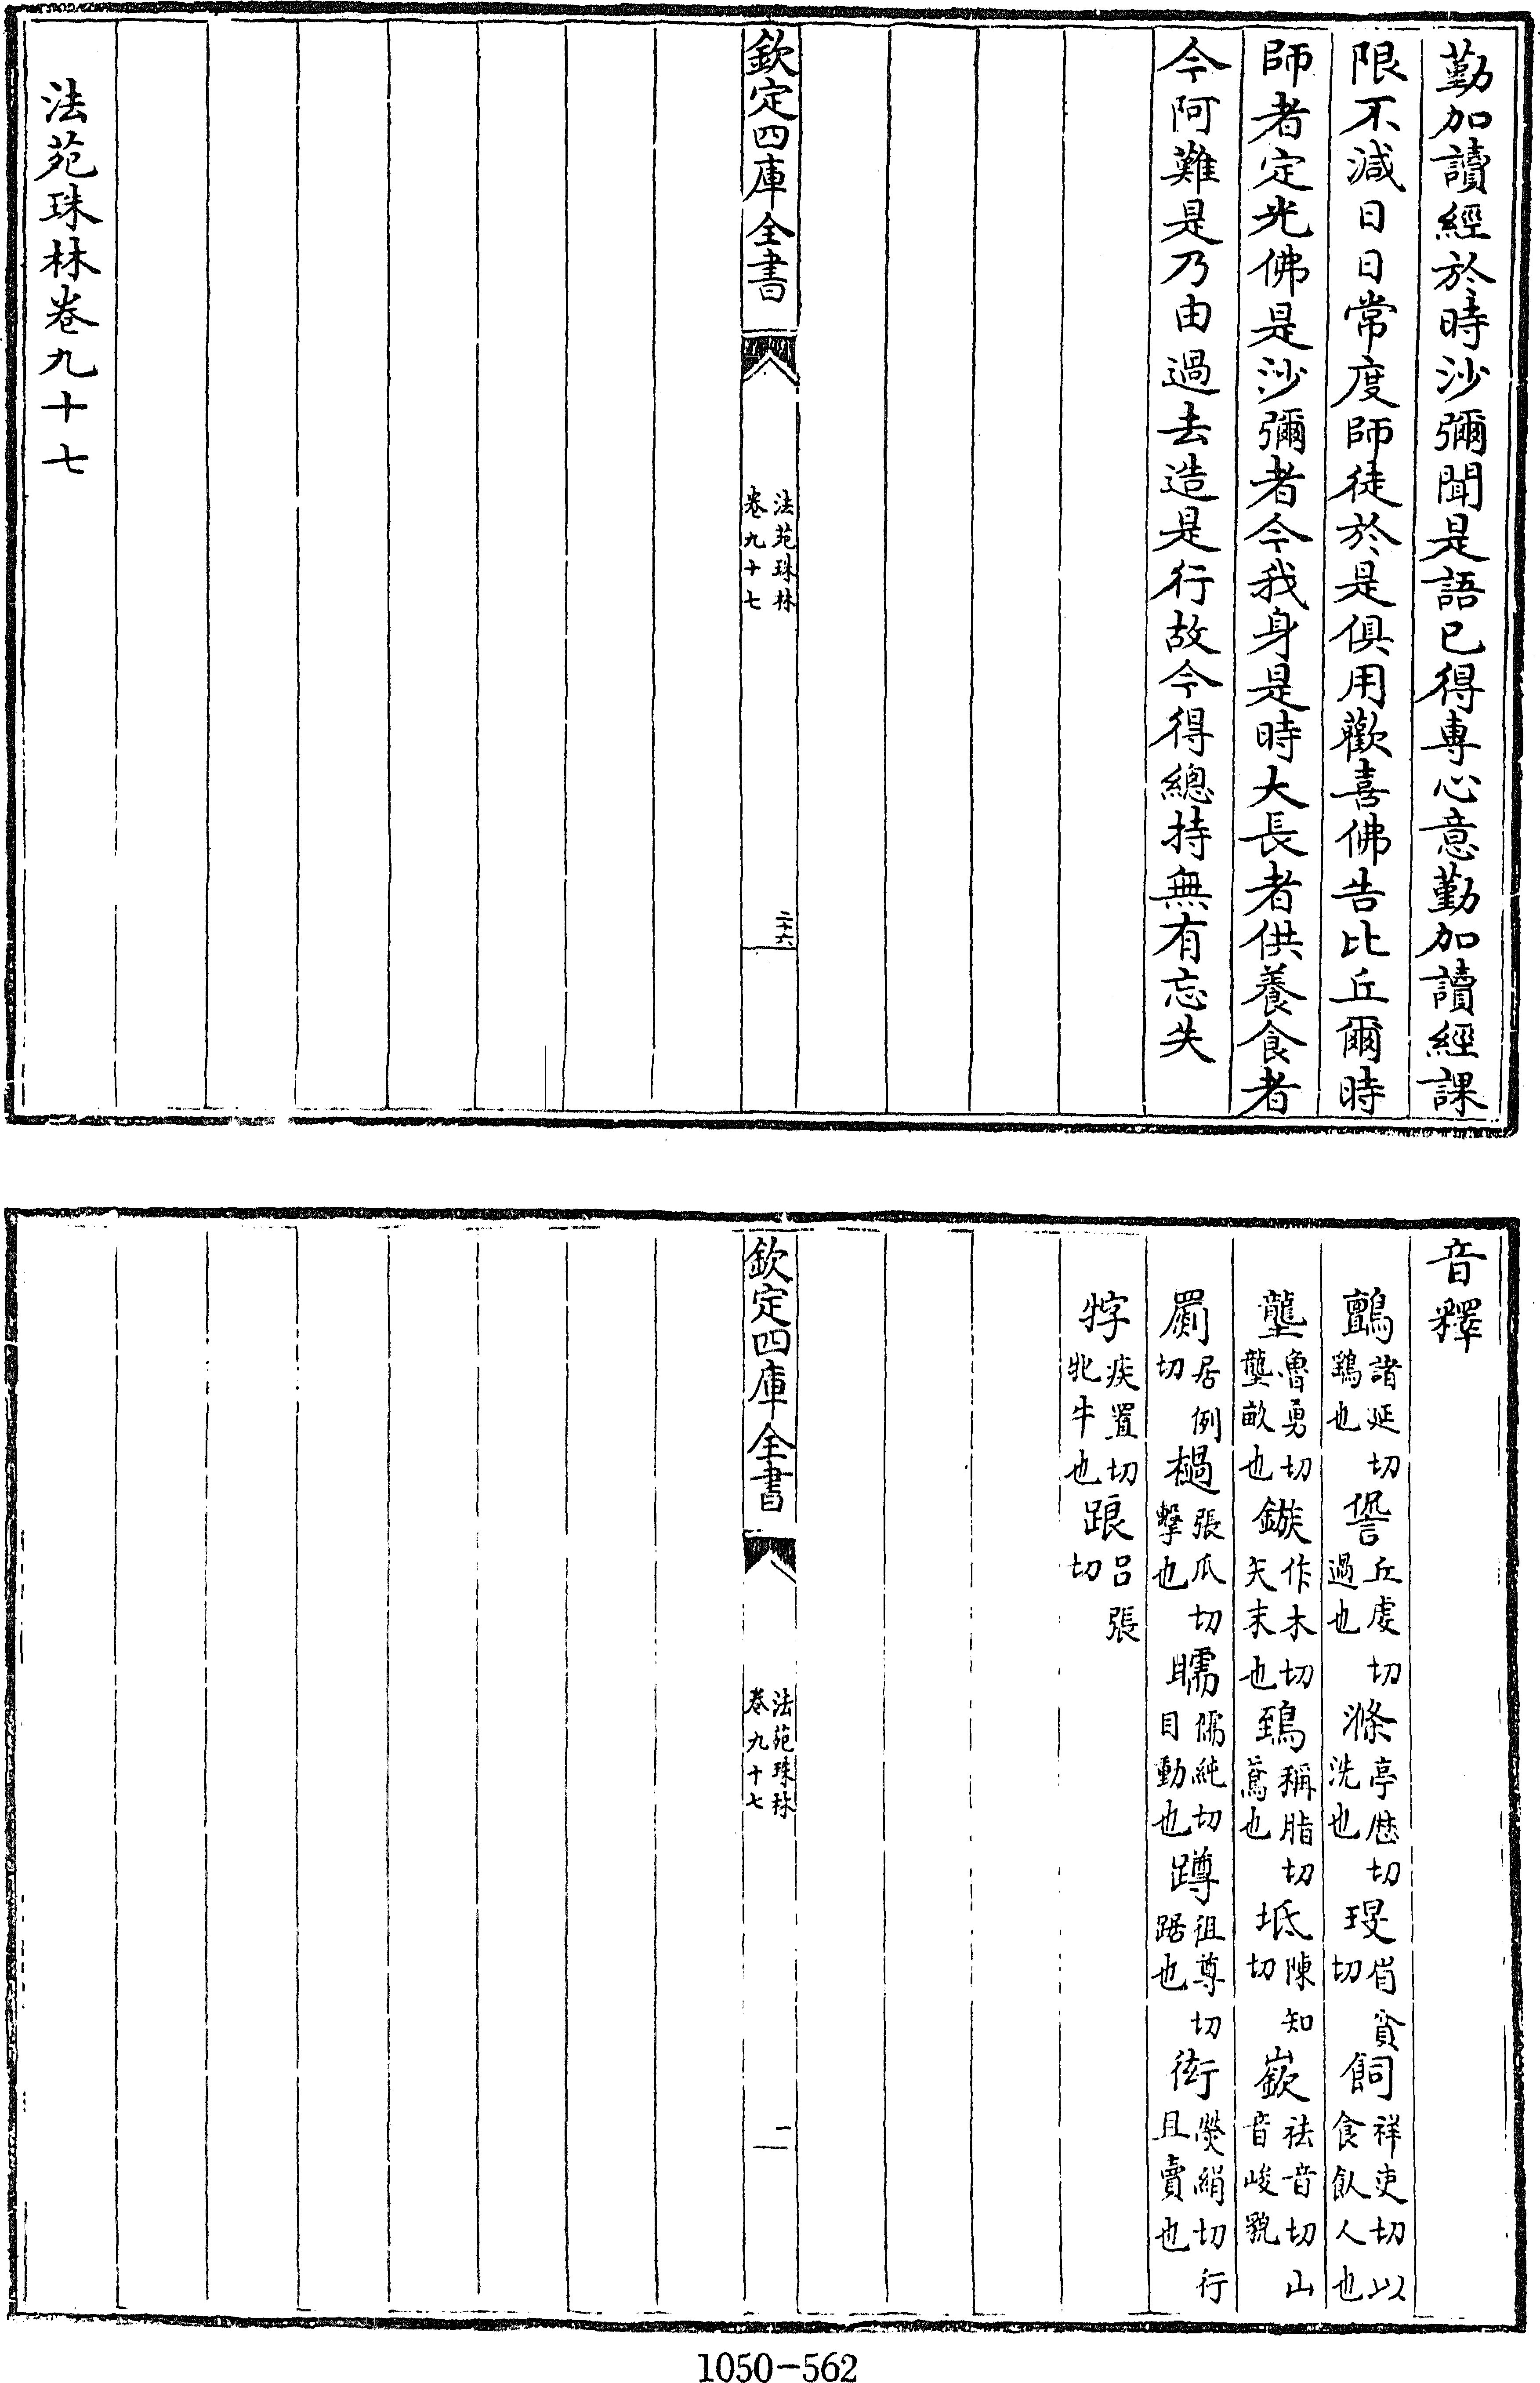 勤加讀經於時沙彌聞是語已得專心意勤加讀經課
限不減日日常度師徒於是俱用歡喜佛告比丘爾時
師者定光佛是沙彌者今我身是時大長者供養食者
今阿難是乃由過去造是行故今得總持無有忘失
欽定四庫全書
法苑珠林
卷九十七
二十六
法苑珠林卷九十七
音釋
鸇諸延切鷂也 諐丘虔切過也 滌亭歷切洗也 瑉眉貧切 飼祥吏切以食飲人也
壟魯勇切壟畝也 鏃作木切矢末也 鵄稱脂切鳶也 坻陳知切 嶔袪音切山音峻貌
罽居例切 檛張瓜切擊也 瞤儒純切目動也 蹲徂尊切踞也 衒熒絹切行且賣也
牸疾置切牝牛也 踉呂張切
欽定四庫全書
法苑珠林
卷九十七
一
1050-562